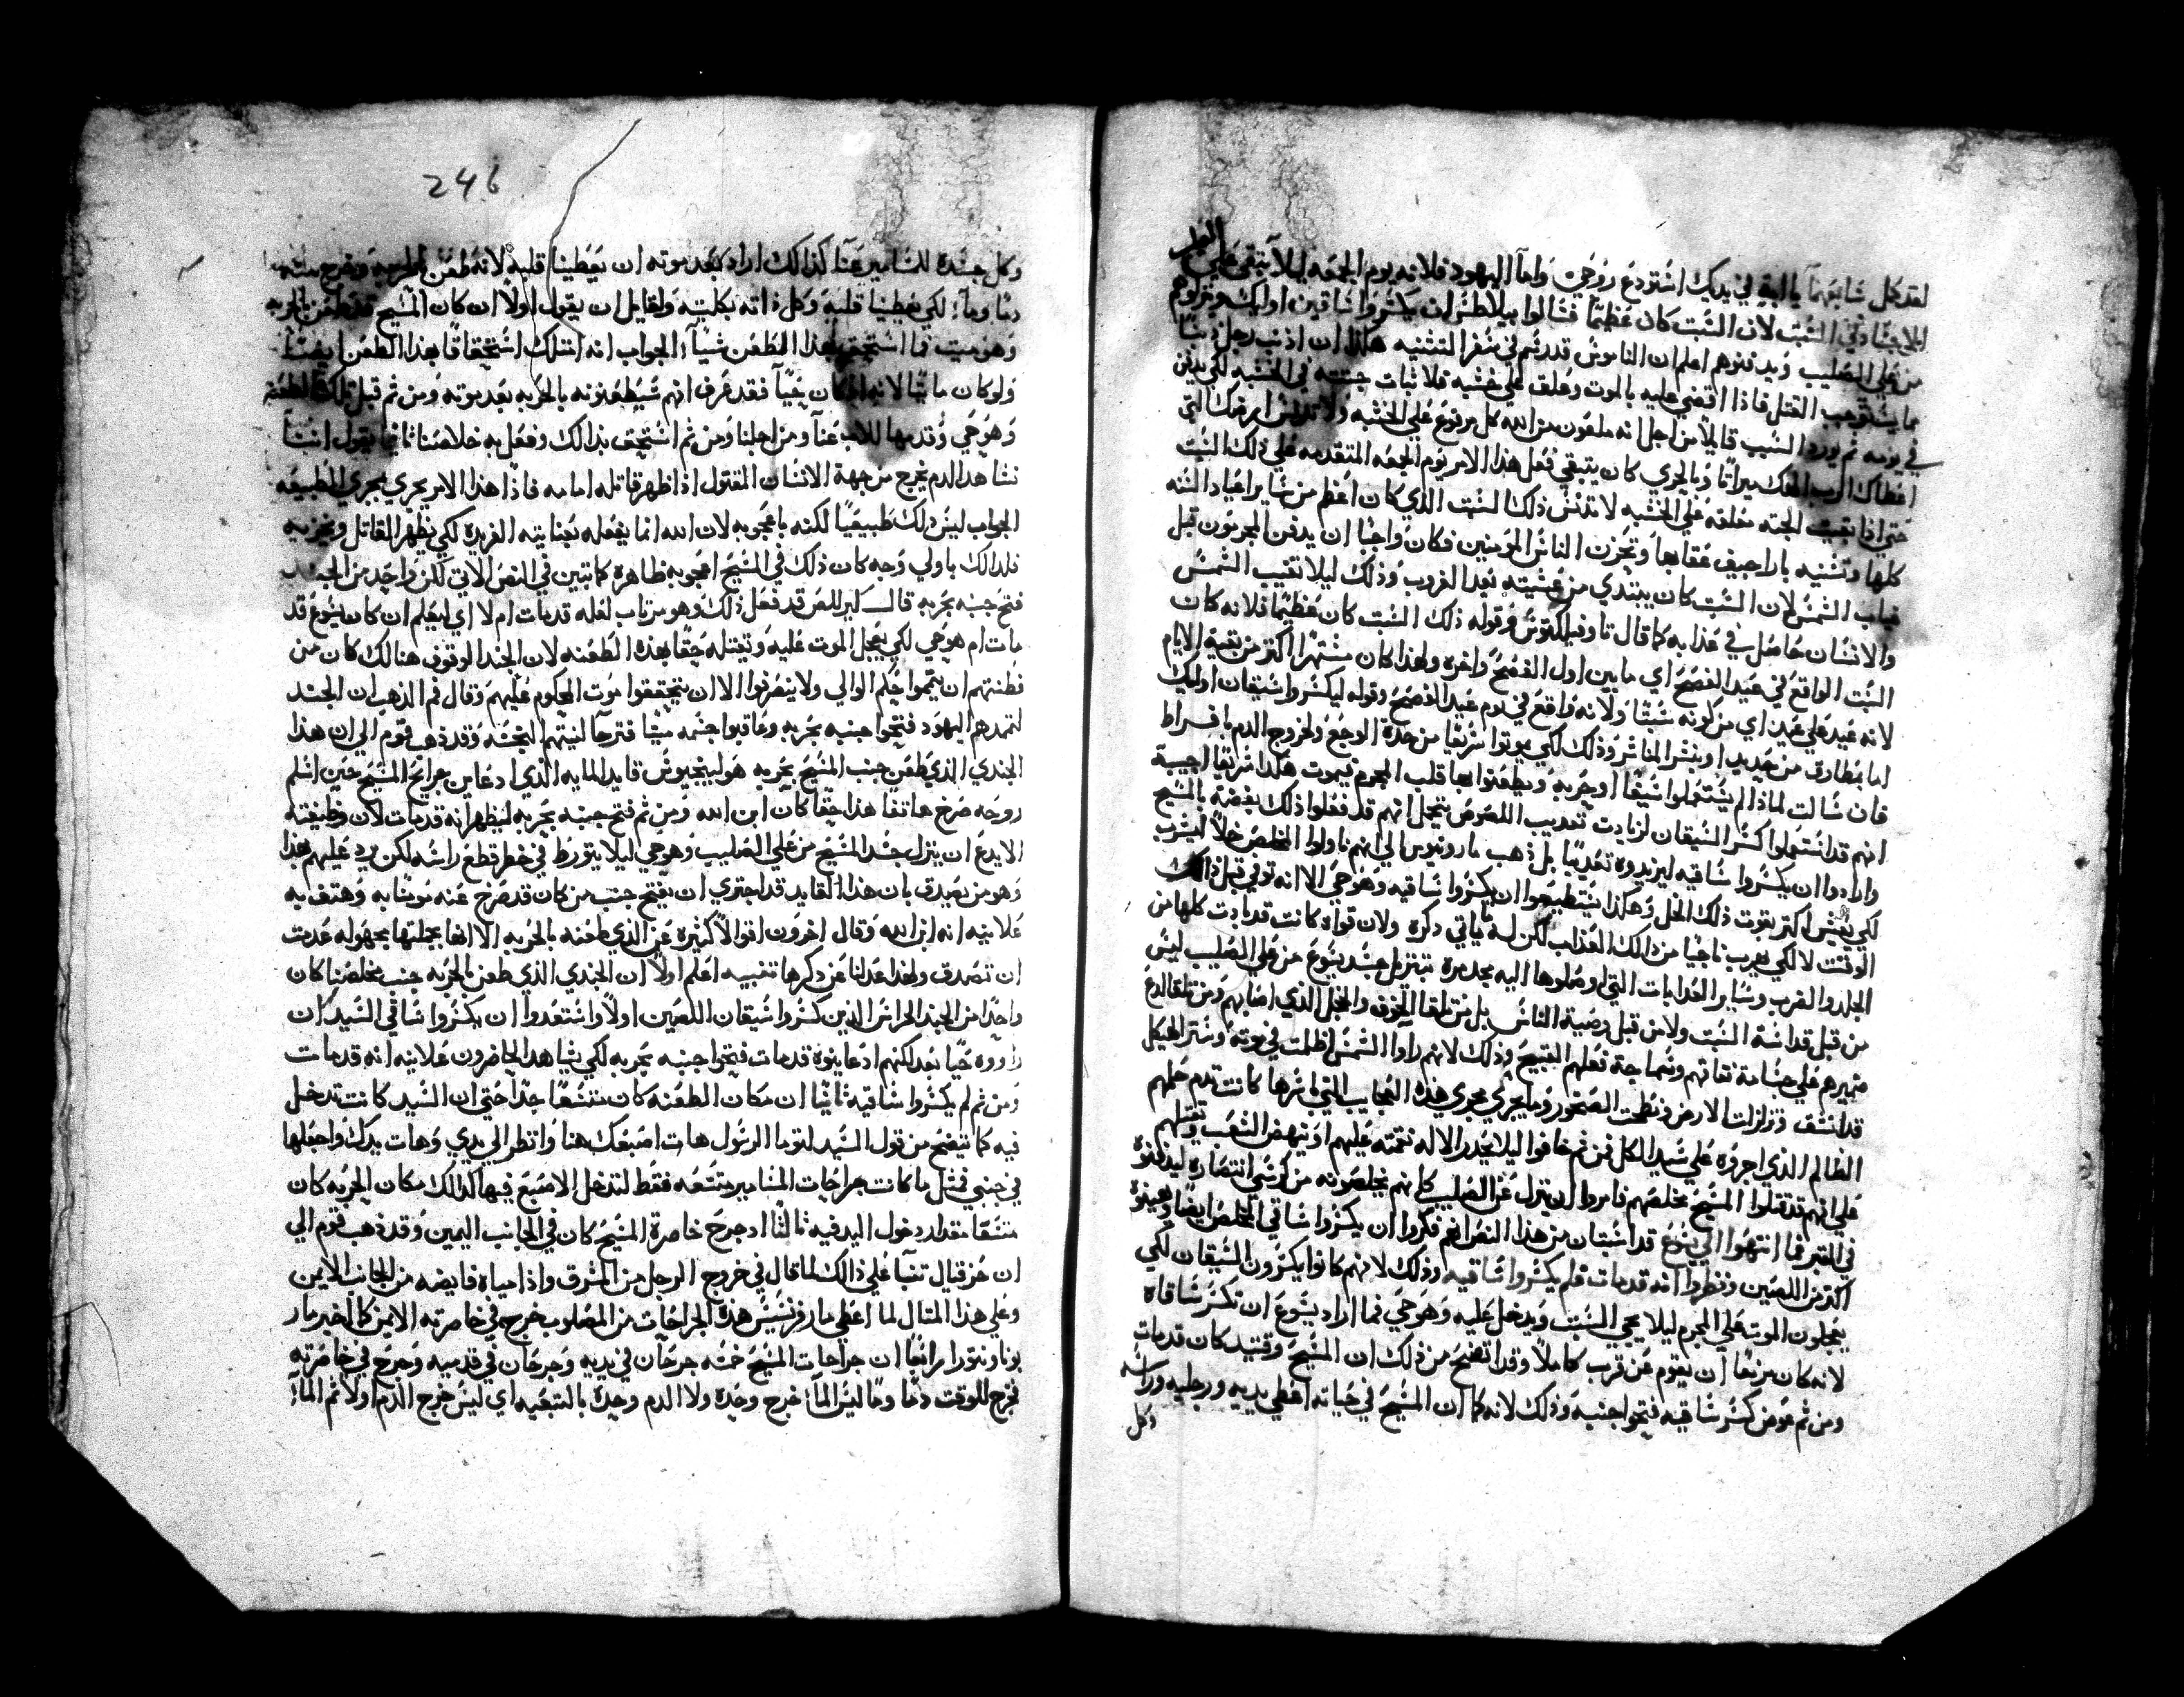 لقد كمل شابعهما يا ابتي في يديك استودع روحي واما اليهود فلانه يوم الجمعه ليلا يتبقى على
الاجساد في السبت لان السبت كان عظيمًا فسالوا بيلاطس ان يكسروا ساقين اوليك وينزلوهم
من على الصليب ويدفنوهم اعلم ان الناموس قد رسم في سفر التثنيه هكذا ان اذنب رجل ذنبًا
مما يستوجب القتل فاذا اقضي عليه بالموت وعلق على خشبه فلا تبات جثته في الخشبه لكي يدفن
في يومه ثم يورد السبب قايلاً من اجل انه ملعون من الله كل مرفوع على الخشبه ولا تدنس ارضك التي
اعطاك الرب الهك ميراثًا وبالحري كان ينبغي فعل هذا الامر يوم الجمعه المتقدمه على ذلك السبت
حتى اذا بقيت الجثه معلقه على الخشبه لا تدنس ذلك السبت الذي كان اعظم من ساير اعياد السنه
كلها وتشنيه باراجيف عقابها وتحزن الناس المومنين فكان واجبًا ان يدفن المجرمون قبل
غياب الشمس لان السبت كان يبتدي من عشيته بعد الغروب وذلك ليلا تغيب الشمس
والانسان حاصل في عذابه كما قال تاوفيلكتوس وقوله ذلك السبت كان عظيمًا فلانه كان
السبت الواقع في عيد الفصح اي ما بين اول الفصح واخره ولهذا كان مشتهرًا اكثر من بقية الايام
لانه عيد على عيد اي من كونه سبتًا ولانه واقع في يوم عيد الفصح وقوله ليكسروا سيقان اوليك
اما بمطارق من حديد او بنشر المناشر وذلك لكي يموتوا سريعًا من حدة الوجع ولخروج الدم بافراط
فان سالت لماذا لم يستعملوا سيفًا او حربة ويطعنوا بها قلب المجرم فيموت هكذا سريعًا اجيبه
انهم قد استعملوا كسر السيقان لزيادت تعذيب اللصوص يتحمل انهم قد فعلوا ذلك بغضة بالمسيح
وارادوا ان يكسروا ساقيه ليزيدوه تعذيبًا بل ذهب مارونيوس الى انهم ناولوا المخلص خلاً ليشرب
لكي يعيش اكثر بقوت ذلك الخل وهكذا يستطيعوا ان يكسروا ساقيه وهو حي الا انه توفي قبل ذالك
الوقت لا لكي يهرب ناجيًا من ذالك العذاب لكن لما ياتي ذكره ولان قواه كانت قد بادت كلها من
الجلد والضرب وساير العذابات التي اوصلوها اليه بجدم تبنزيل جسد يسوع من على الصليب ليس
من قبل قداسة السبت ولا من قبل وصية الناموس بل من تلقا الخوف والخجل الذي اصابهم ومن تلقا لدغ
ضميرهم على جسامة نفاقهم وسماجة فعلهم القبيح وذلك لانهم راوا الشمس اظلمت في موته وستر الهيكل
قد انشق وتزلزلت الارض وتفطحت الصخور وما يجري مجرى هذه العجايب التي باسرها كانت تدم حملهم
الظالم الذي اجروه على سيد الكل فمن ثم خافوا ليلا يحدر الاله نقمته عليهم او ينهض الشعب ويقتلهم
على انهم قد قتلوا المسيح مخلصهم فامروا ان ينزل عن الصليب كانهم يخلصونه من كرسي انتصاره ليدفنوه
في القبر فما انتهوا الى يسوع قد استبان من هذا النص انهم فكروا ان يكسروا ساقي المخلص ايضًا ويهينوه
اكثر من اللصين ونظروا انه قد مات فلم يكسروا ساقيه وذلك لانهم كانوا يكسرون السيقان لكي
يعجلون الموت على المجرم ليلا يجي السبت ويدخل عليه وهو حي فما اراد يسوع ان تكسر ساقاه
لانه كان مزمعًا ان يقوم عن قرب كاملاً وقد اتضح من ذلك ان المسيح وقتيد كان قد مات
ومن ثم عوض كسر ساقيه فتحوا جنبه وذلك لانه كما ان المسيح في حياته اعطى يديه ورجليه وراسه
وكل
246
وكل جسده للمسامير عنا كذالك اراد بعد موته ان يعطينا قلبه لانه طعن بالحربه وخرج منه
دمًا وماء لكي يعطينا قلبه وكل ذاته بكليته ولقايل ان يقول اولاً ان كان المسيح قد طعن بالحربه
وهو ميت فما استحق بهذا الطعن شيًا الجواب انه امتلك استحقاقًا بهذا الطعن ايضًا
ولو كان مايتًا لانه اذ كان حيًا فقد عرف انهم سيطعنونه بالحربه بعد موته ومن ثم قبل تلك الطعنه
وهو حي وقدمها للاب عنا ومن اجلنا ومن ثم استحق بذالك وفعل به خلاصنا ثانيًا يقول انسًا
نشاهد الدم يخرج من جهة الانسان المقتول اذا ظهر قاتله امامه فاذًا هذا الامر يجري مجرى الطبيعه
الجواب ليس ذلك طبيعيًا لكنه باعجوبه لان الله انما يفعله بعنايته الفريده لكي يظهر القاتل ويخزيه
فلذالك باولي وجه كان ذلك في المسيح اعجوبه ظاهرة كما تبين في النص الاتي لكن واحد من الجند
فتح جنبه بحربه قال كيرللس قد فعل ذلك وهو مرتاب لعله قد مات ام لا اي ليعلم ان كان يسوع قد
مات ام هو حي لكي يعجل الموت عليه وتقتله حقًا بهذه الطعنه لان الجند الوقوف هنالك كان من
فطنتهم ان يتموا حكم الوالي ولا ينصرفوا الا ان يتحققوا موت المحكوم عليهم وقال فم الذهب ان الجند
لتمدهم اليهود فتحوا جنبه بحربه وعاقبوا جسمه ميتًا فترحا لنيتهم النجسه وقد ذهب قوم الى ان هذا
الجندي الذي طعن جنب المسيح بحربه هو لينجيوس قايد المايه الذي اذ عاين جرايح المسيح حين اسلم
روحه صرخ هاتفا هذا حقًا كان ابن الله ومن ثم فتح جنبه بحربه ليظهر انه قد مات لان وظيفته
الا يدع ان ينزل جسد المسيح من على الصليب وهو حي ليلا يتورط في خطر قطع راسه لكن يرد عليهم هذا
وهو من يصدق بان هذا القايد قد اجترى ان يفتح جنب من كان قد صرح عنه مومنًا به وهتف به
علانيه انه ابن الله وقال اخرون اقوالاً كثيره عن الذي طعنه بالحربه الا انها بجملتها مجهوله عدمت
ان تصدق ولهذا عدلنا عن ذكرها تنبيه اعلم اولاً ان الجندي الذي طعن بالحربه جنب مخلصنا كان
واحدًا من الجند الحراس الذين كسروا سيقان اللصين اولاً واستعدوا ان يكسروا ساقي السيد ان
راووه حيًا بعد لكنهم اذ عاينوه قد مات فتحوا جنبه بحربه لكي يشاهد الحاضرون علانيه انه قد مات
ومن ثم لم يكسروا ساقيه ثانيًا ان مكان الطعنه كان متسعًا جدًا حتى ان السيد كانت تدخل
فيه كما يتضح من قول السيد لتوما الرسول هات اصبعك هنا وانظر الى يدي وهات يدك واجعلها
في جنبي فمثل ما كانت جراحات المسامير متسعه فقط لتدخل الاصبع فيها كذالك مكان الحربه كان
متسعًا مقدار دخول اليد فيه ثالثًا ان جرح خاصرة المسيح كان في الجانب اليمين وقد ذهب قوم الى
ان حزقيال تنبا على ذالك لما قال في خروج الرجل من المشرق واذا مياه فايضه من الجانب الايمن
وعلى هذا المثال لما اعطي مار فرنسيس هذه الجراحات من المصلوب خرج في خاصرته الايمن كما اخبر مار
بوناونتورا رابعًا ان جراحات المسيح خمسه جرحان في يديه وجرحان في قدميه وجرح في خاصرته
فخرج للوقت دمًا وما ليس الماء خرج وحده ولا الدم وحده بالتبعيه اي ليس خرج الدم اولاً ثم الماء